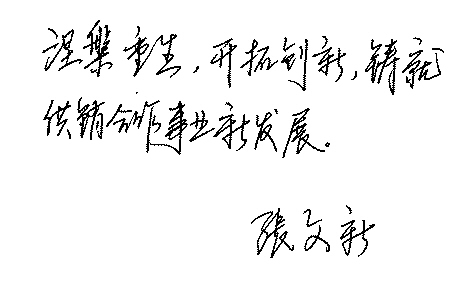 涅槃重生，开拓创新，铸就
供销合作事业新发展。
张文新